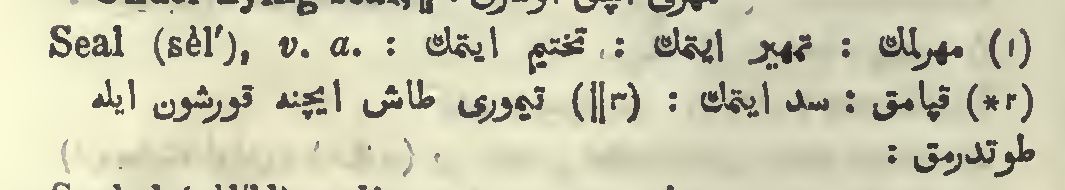 Seal (sèl'), v. a. : (١) مهرلمك : تمهير ايتمك : تختيم ايتمك :
(٢*) قپامق : سد ايتمك : (٣‖) تيمورى طاش ايچنه قورشون ايله
طوتدرمق :